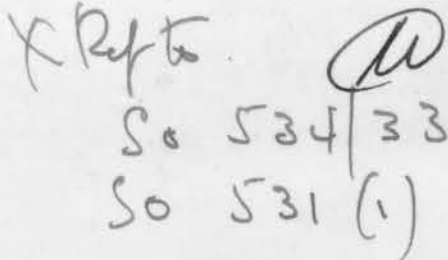 X Ref to
So 534/33
So 531 (1)